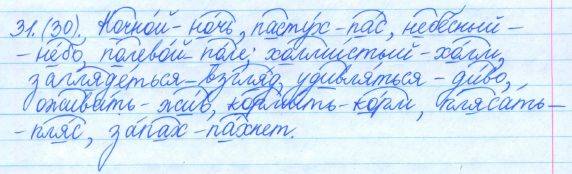 31.(30). Ночно́й - но́чь, пасту́х - па́с, небе́сный -
- не́бо, полево́й - по́ле; холми́стый - хо́лм,
загляде́ться - взгляд, удивля́ться - ди́во,
ожива́ть - жи́в, корми́ть - ко́рм, пляса́ть -
- пляс, за́пах - па́хнет.